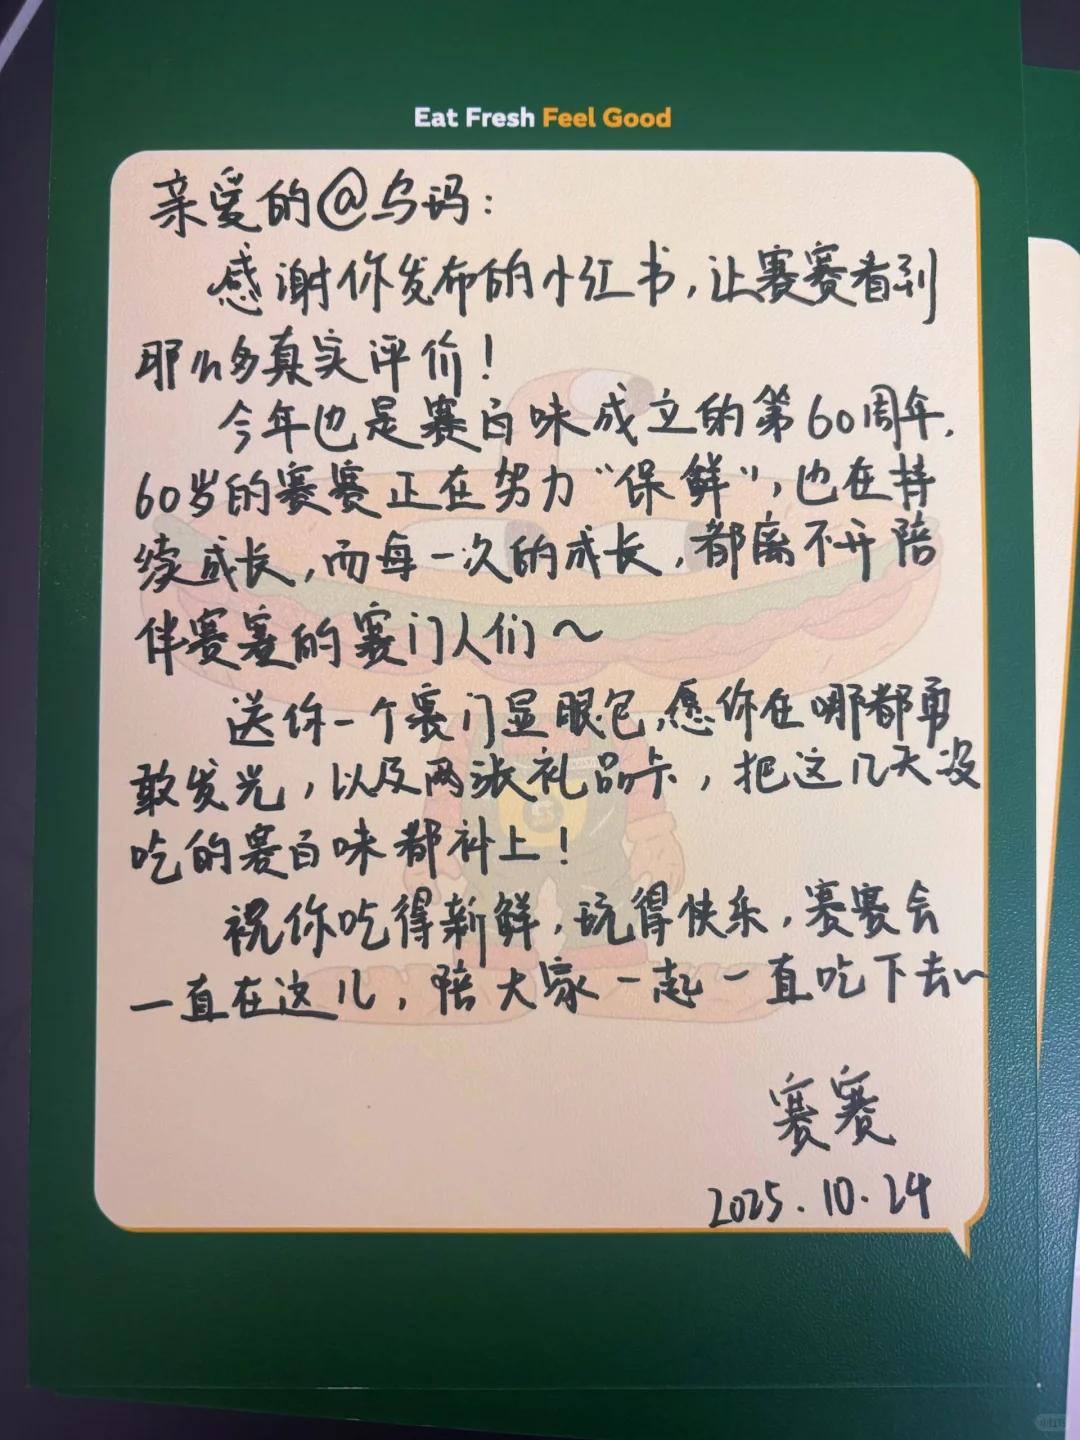 Eat Fresh Feel Good
亲爱的@乌玛：
感谢你发布的小红书，让赛赛看到
那么多真实评价！
今年也是赛百味成立的第60周年，
60岁的赛赛正在努力“保鲜”，也在持
续成长，而每一次的成长，都离不开陪
伴赛赛的赛门人们～
送你一个赛门显眼包，愿你在哪都勇
敢发光，以及两张礼品卡，把这几天没
吃的赛百味都补上！
祝你吃得新鲜，玩得快乐，赛赛会
一直在这儿，陪大家一起一直吃下去～
赛赛
2025.10.24